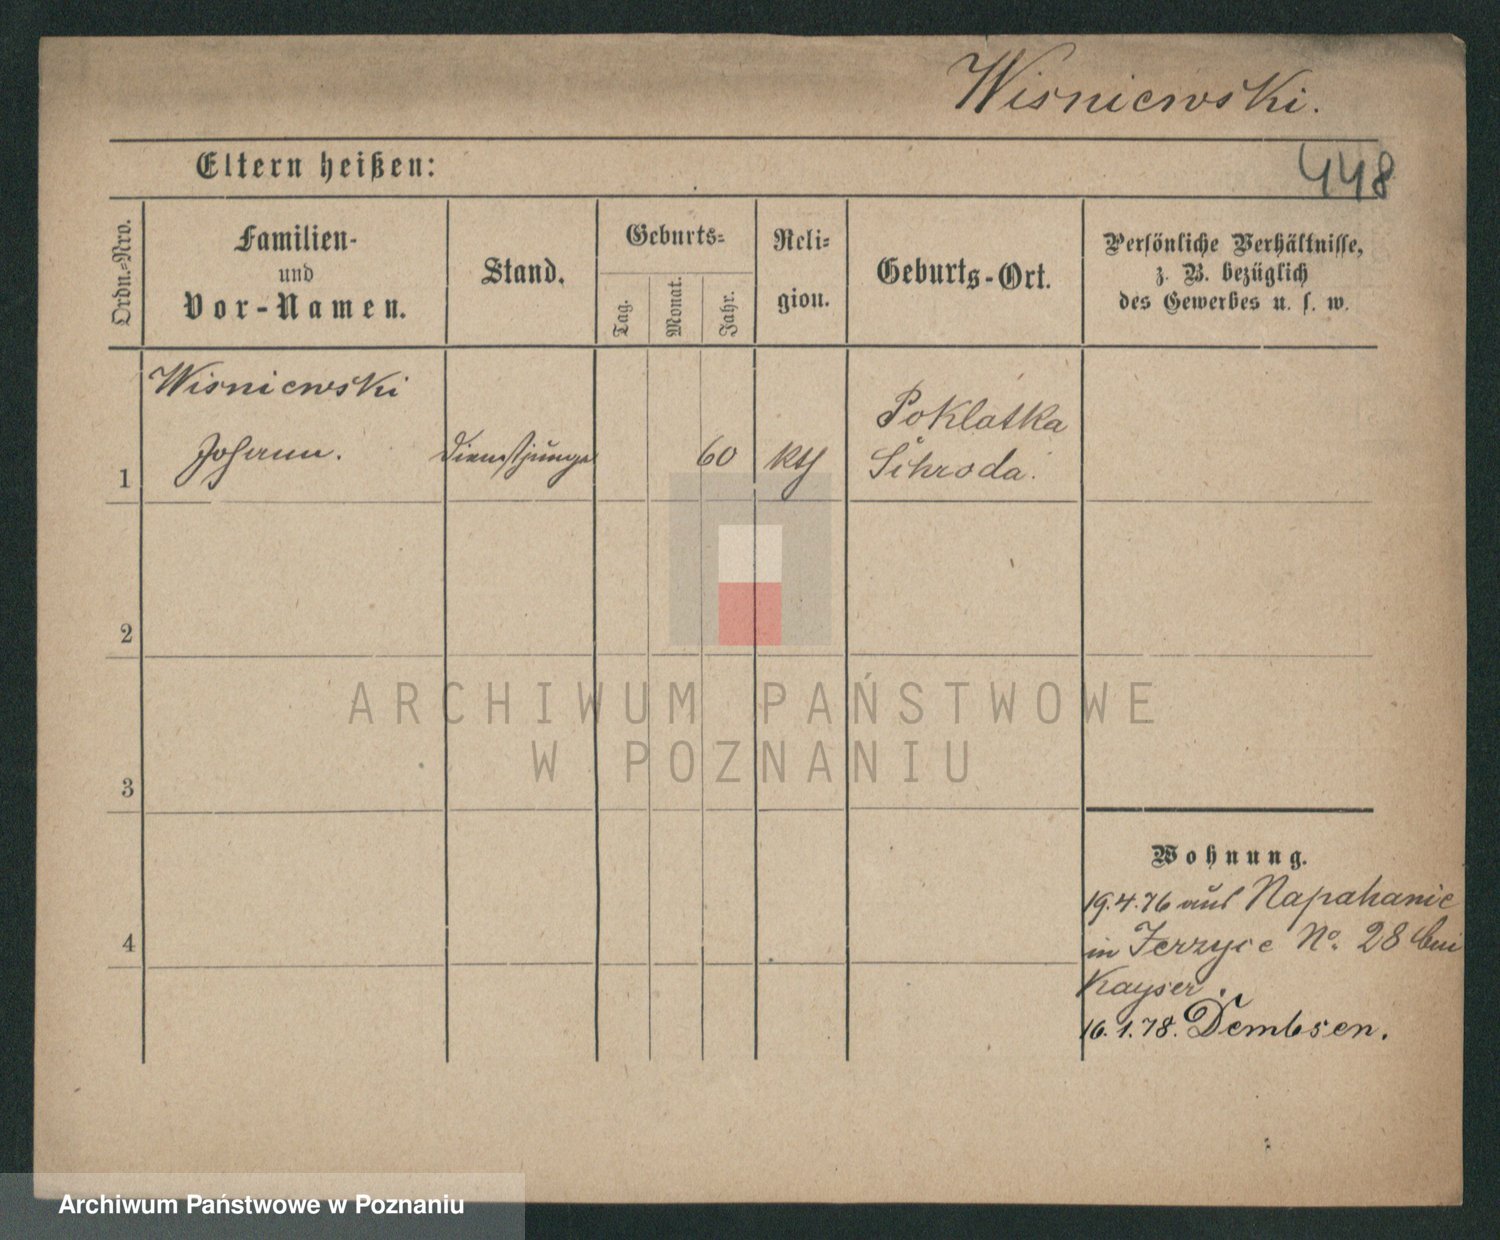 Wisniewski.
448
Eltern heißen:
Ordn.-Nro.
Familien-
und
Vor-Namen.
Stand.
Geburts-
Tag.
Monat.
Jahr.
Reli-
gion.
Geburts-Ort.
Persönliche Verhältnisse,
z. B. bezüglich
des Gewerbes u. s. w.
Wisniewski
Johann.
Dienstjunge
60
kth
Poklatka
Schroda.
1
2
3
4
Wohnung.
19.4.76 aus Napahanie
in Jerzyce No. 28 bei
Kayser.
16.1.78. Dembsen.
ARCHIWUM PAŃSTWOWE
W POZNANIU
Archiwum Państwowe w Poznaniu